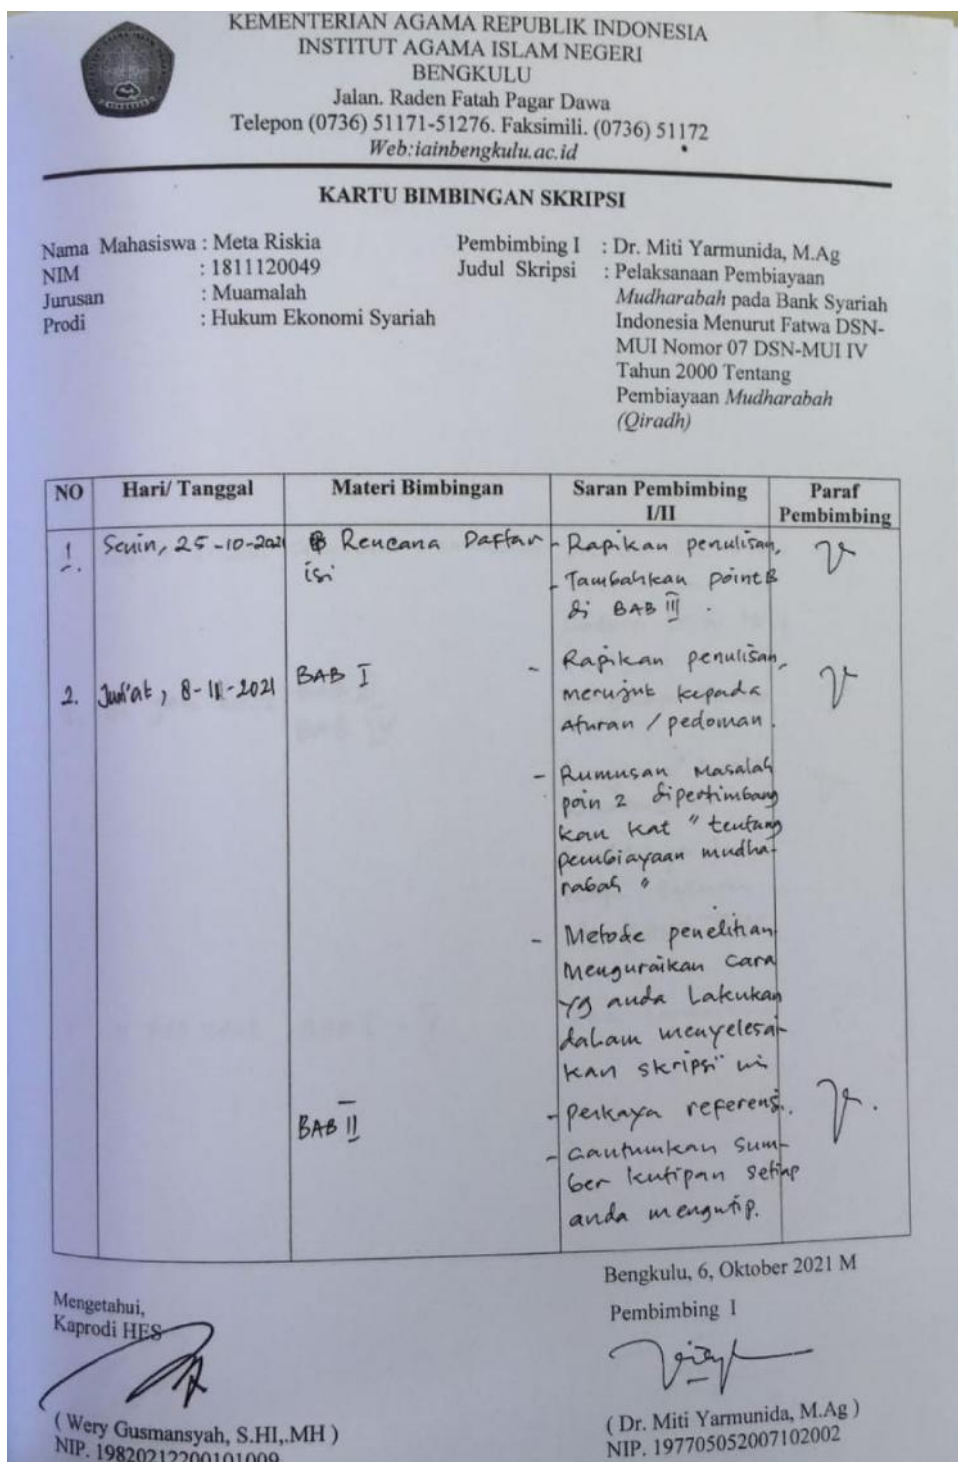 KEMENTERIAN AGAMA REPUBLIK INDONESIA
INSTITUT AGAMA ISLAM NEGERI
BENGKULU
Jalan. Raden Fatah Pagar Dawa
Telepon (0736) 51171-51276. Faksimili. (0736) 51172
Web:iainbengkulu.ac.id
KARTU BIMBINGAN SKRIPSI
Nama Mahasiswa : Meta Riskia
NIM : 1811120049
Jurusan : Muamalah
Prodi : Hukum Ekonomi Syariah
Pembimbing I : Dr. Miti Yarmunida, M.Ag
Judul Skripsi : Pelaksanaan Pembiayaan
Mudharabah pada Bank Syariah
Indonesia Menurut Fatwa DSN-
MUI Nomor 07 DSN-MUI IV
Tahun 2000 Tentang
Pembiayaan Mudharabah
(Qiradh)
NO Hari/ Tanggal Materi Bimbingan Saran Pembimbing I/II Paraf Pembimbing
1. Senin, 25-10-2021 Rencana Daftar
isi
- Rapikan penulisan,
- Tambahkan point B
di BAB III .
2. Jum'at, 8-11-2021 BAB I
- Rapikan penulisan,
merujuk kepada
Aturan / pedoman.
- Rumusan Masalah
poin 2 dipertimbang
kan kat " tentang
pembiayaan mudha-
rabah "
- Metode penelitian
Menguraikan cara
yg anda Lakukan
dalam menyelesai-
kan skripsi ini
BAB II
- perkaya referensi.
- cantumkan sum-
ber kutipan setiap
anda mengutip.
Bengkulu, 6, Oktober 2021 M
Mengetahui,
Kaprodi HES
Pembimbing I
( Wery Gusmansyah, S.HI,.MH )
NIP. 19820212200101009
( Dr. Miti Yarmunida, M.Ag )
NIP. 197705052007102002